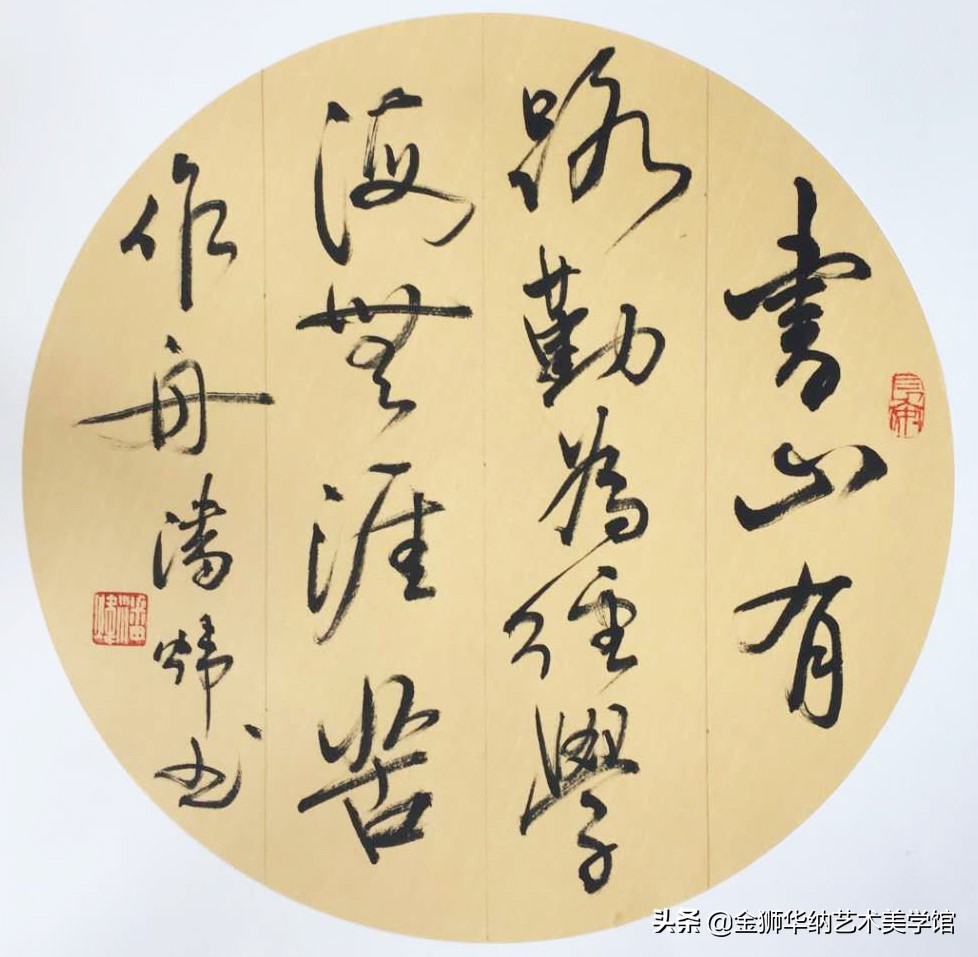 書山有
路勤為徑學
海無涯苦
作舟潘煒书
潘煒
头条 @金狮华纳艺术美学馆